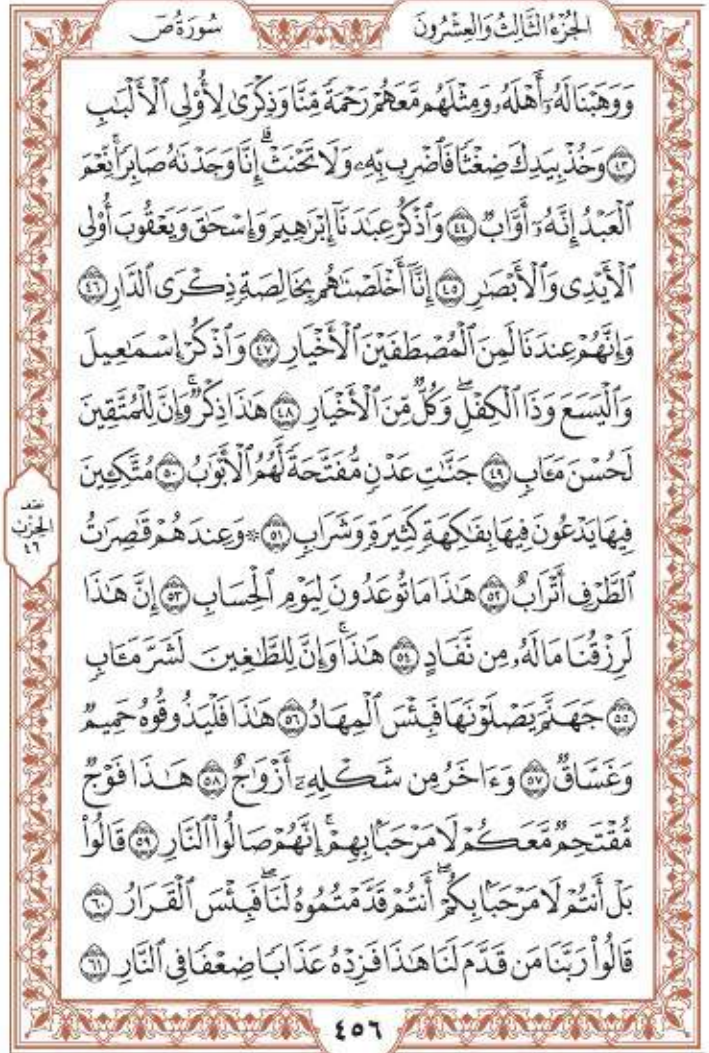 الجُزْءُ الثَّالِثُ وَالعِشْرُونَ
سُورَةُ صٓ
وَوَهَبْنَا لَهُۥٓ أَهْلَهُۥ وَمِثْلَهُم مَّعَهُمْ رَحْمَةً مِّنَّا وَذِكْرَىٰ لِأُو۟لِى ٱلْأَلْبَٰبِ
﴿٤٣﴾ وَخُذْ بِيَدِكَ ضِغْثًا فَٱضْرِب بِّهِۦ وَلَا تَحْنَثْ ۗ إِنَّا وَجَدْنَٰهُ صَابِرًا ۚ نِّعْمَ
ٱلْعَبْدُ ۖ إِنَّهُۥٓ أَوَّابٌ ﴿٤٤﴾ وَٱذْكُرْ عِبَٰدَنَآ إِبْرَٰهِيمَ وَإِسْحَٰقَ وَيَعْقُوبَ أُو۟لِى
ٱلْأَيْدِى وَٱلْأَبْصَٰرِ ﴿٤٥﴾ إِنَّآ أَخْلَصْنَٰهُم بِخَالِصَةٍ ذِكْرَى ٱلدَّارِ ﴿٤٦﴾
وَإِنَّهُمْ عِندَنَا لَمِنَ ٱلْمُصْطَفَيْنَ ٱلْأَخْيَارِ ﴿٤٧﴾ وَٱذْكُرْ إِسْمَٰعِيلَ
وَٱلْيَسَعَ وَذَا ٱلْكِفْلِ ۖ وَكُلٌّ مِّنَ ٱلْأَخْيَارِ ﴿٤٨﴾ هَٰذَا ذِكْرٌ ۚ وَإِنَّ لِلْمُتَّقِينَ
لَحُسْنَ مَـَٔابٍ ﴿٤٩﴾ جَنَّٰتِ عَدْنٍ مُّفَتَّحَةً لَّهُمُ ٱلْأَبْوَٰبُ ﴿٥٠﴾ مُتَّكِـِٔينَ
فِيهَا يَدْعُونَ فِيهَا بِفَٰكِهَةٍ كَثِيرَةٍ وَشَرَابٍ ﴿٥١﴾ ۞ وَعِندَهُمْ قَٰصِرَٰتُ
ٱلطَّرْفِ أَتْرَابٌ ﴿٥٢﴾ هَٰذَا مَا تُوعَدُونَ لِيَوْمِ ٱلْحِسَابِ ﴿٥٣﴾ إِنَّ هَٰذَا
لَرِزْقُنَا مَا لَهُۥ مِن نَّفَادٍ ﴿٥٤﴾ هَٰذَا ۚ وَإِنَّ لِلطَّٰغِينَ لَشَرَّ مَـَٔابٍ
﴿٥٥﴾ جَهَنَّمَ يَصْلَوْنَهَا فَبِئْسَ ٱلْمِهَادُ ﴿٥٦﴾ هَٰذَا فَلْيَذُوقُوهُ حَمِيمٌ
وَغَسَّاقٌ ﴿٥٧﴾ وَءَاخَرُ مِن شَكْلِهِۦٓ أَزْوَٰجٌ ﴿٥٨﴾ هَٰذَا فَوْجٌ
مُّقْتَحِمٌ مَّعَكُمْ ۖ لَا مَرْحَبًۢا بِهِمْ ۚ إِنَّهُمْ صَالُوا۟ ٱلنَّارِ ﴿٥٩﴾ قَالُوا۟
بَلْ أَنتُمْ لَا مَرْحَبًۢا بِكُمْ ۖ أَنتُمْ قَدَّمْتُمُوهُ لَنَا ۖ فَبِئْسَ ٱلْقَرَارُ ﴿٦٠﴾
قَالُوا۟ رَبَّنَا مَن قَدَّمَ لَنَا هَٰذَا فَزِدْهُ عَذَابًا ضِعْفًا فِى ٱلنَّارِ ﴿٦١﴾
نصف
الحِزْب
٤٦
٤٥٦